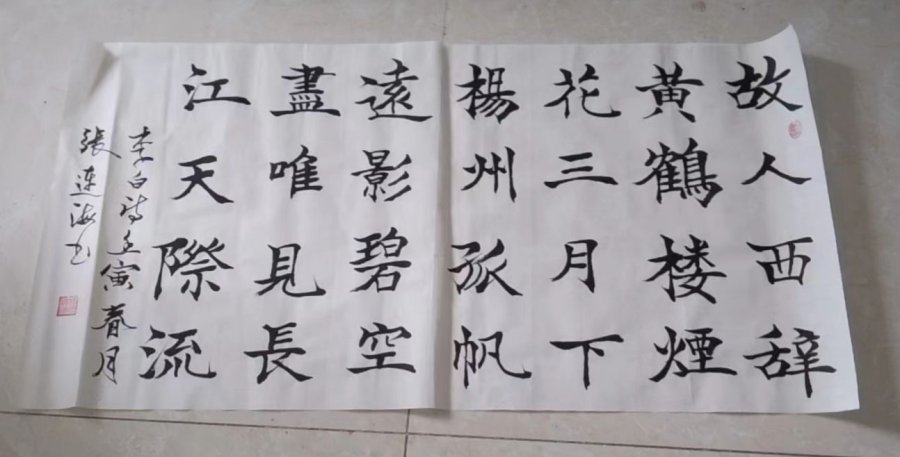 故人西辞
黄鹤楼煙
花三月下
楊州孤帆
遠影碧空
盡唯見長
江天際流
李白诗壬寅春月
張連海书